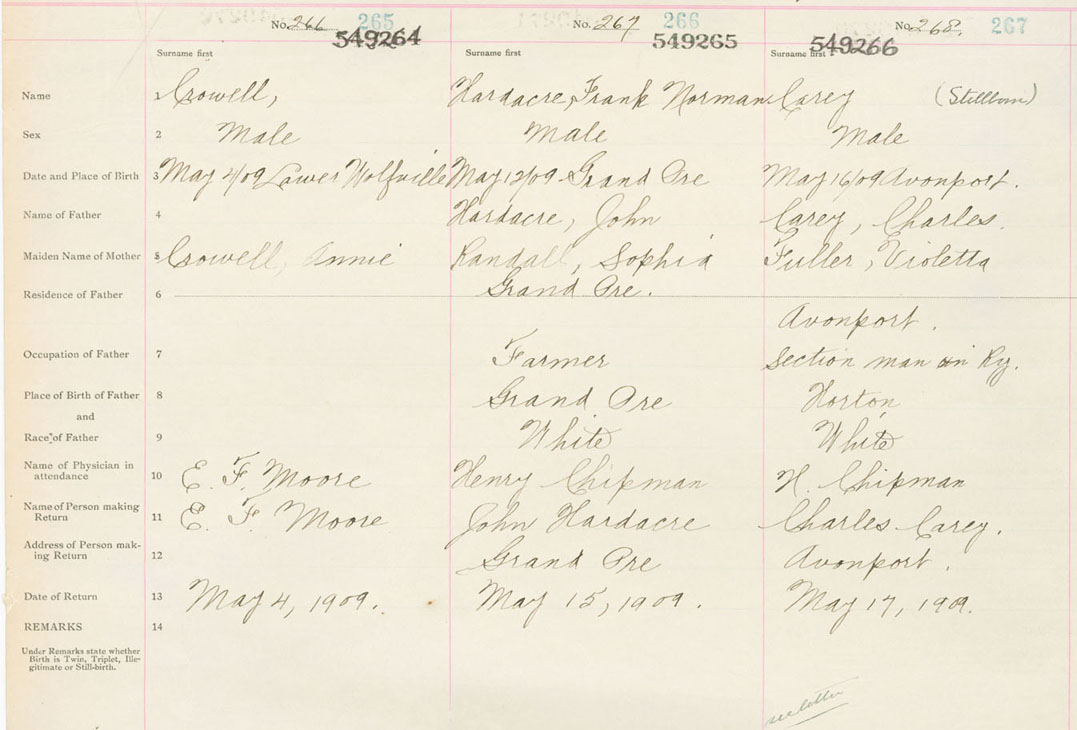 No. 266 265 549264 No. 267 266 549265 No. 268. 267 549266
Surname first Surname first Surname first
Name 1 Crowell, Hardacre, Frank Norman Carey (Stillborn)
Sex 2 Male Male Male
Date and Place of Birth 3 May 4/09 Lower Wolfville May 12/09 Grand Pre May 16/09 Avonport.
Name of Father 4 Hardacre, John Carey, Charles.
Maiden Name of Mother 5 Crowell, Annie Randall, Sophia Fuller, Violetta
Residence of Father 6 Grand Pre.
Avonport.
Occupation of Father 7 Farmer Section man on Ry.
Place of Birth of Father 8 Grand Pre Horton
and
Race of Father 9 White White
Name of Physician in
attendance 10 E. F. Moore Henry Chipman H. Chipman
Name of Person making
Return 11 E. F. Moore John Hardacre Charles Carey.
Address of Person mak-
ing Return 12 Grand Pre Avonport.
Date of Return 13 May 4, 1909. May 15, 1909. May 17, 1909.
REMARKS 14
Under Remarks state whether
Birth is Twin, Triplet, Ille-
gitimate or Still-birth.